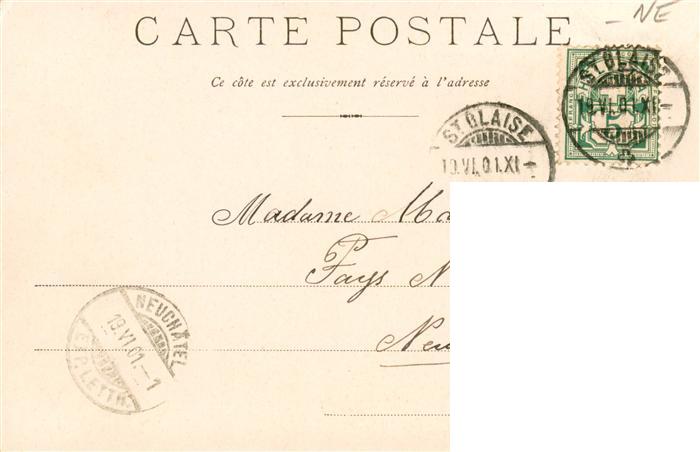 NE
CARTE POSTALE
Ce côte est exclusivement réservé à l'adresse
ST BLAISE
19.VI.01.XI
ST BLAISE
19.VI.01.XI
5
Madame
Pays N
NEUCHÂTEL
19.VI.01.-1
EXP. LETTR.